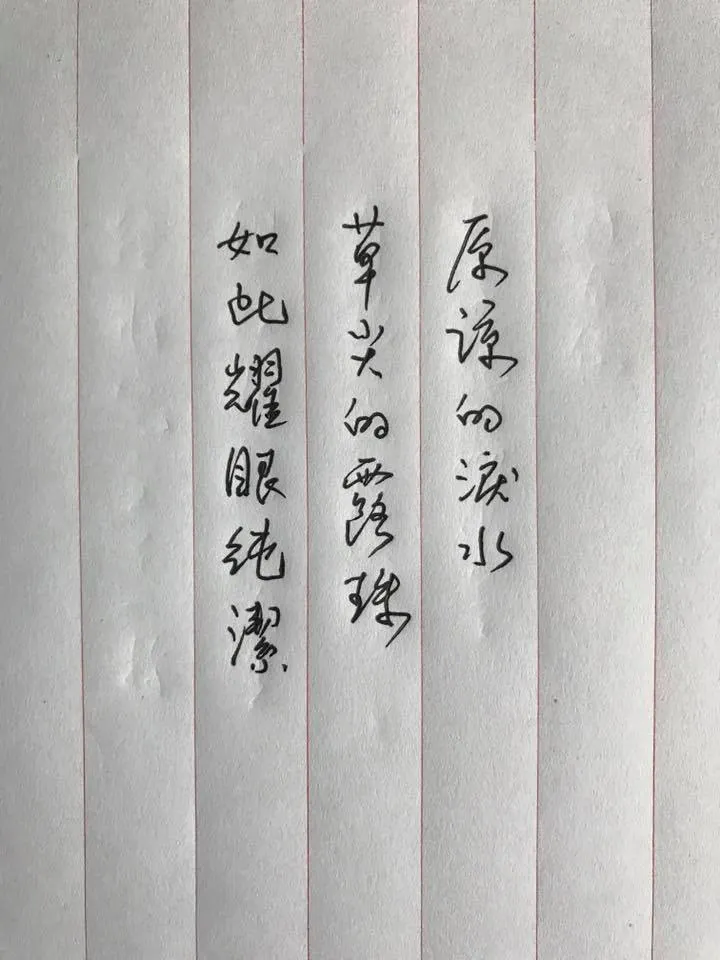 原諒的淚水
草尖的露珠
如此耀眼純潔